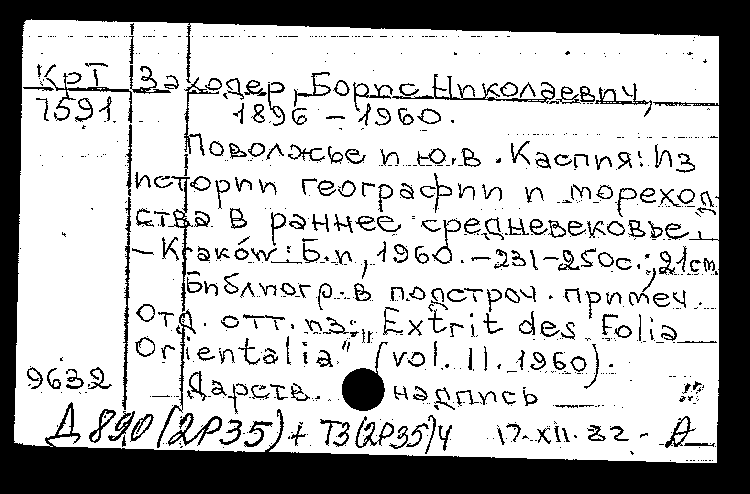 КрТ Заходер, Борис Николаевич,
7591 1896 – 1960.
Поволжье и ю.в. Каспия: Из
истории географии и мореход-
ства в раннее средневековье.
– Kraków: Б.и, 1960. – 231-250с.; 21cm
Библиогр. в подстроч. примеч.
Отд. отт. из: „Extrit des Folia
Orientalia" (vol. II. 1960).
9632 Дарств. надпись
Д 890(2Р35) + Т3(2Р35)4 17.XII.82. -